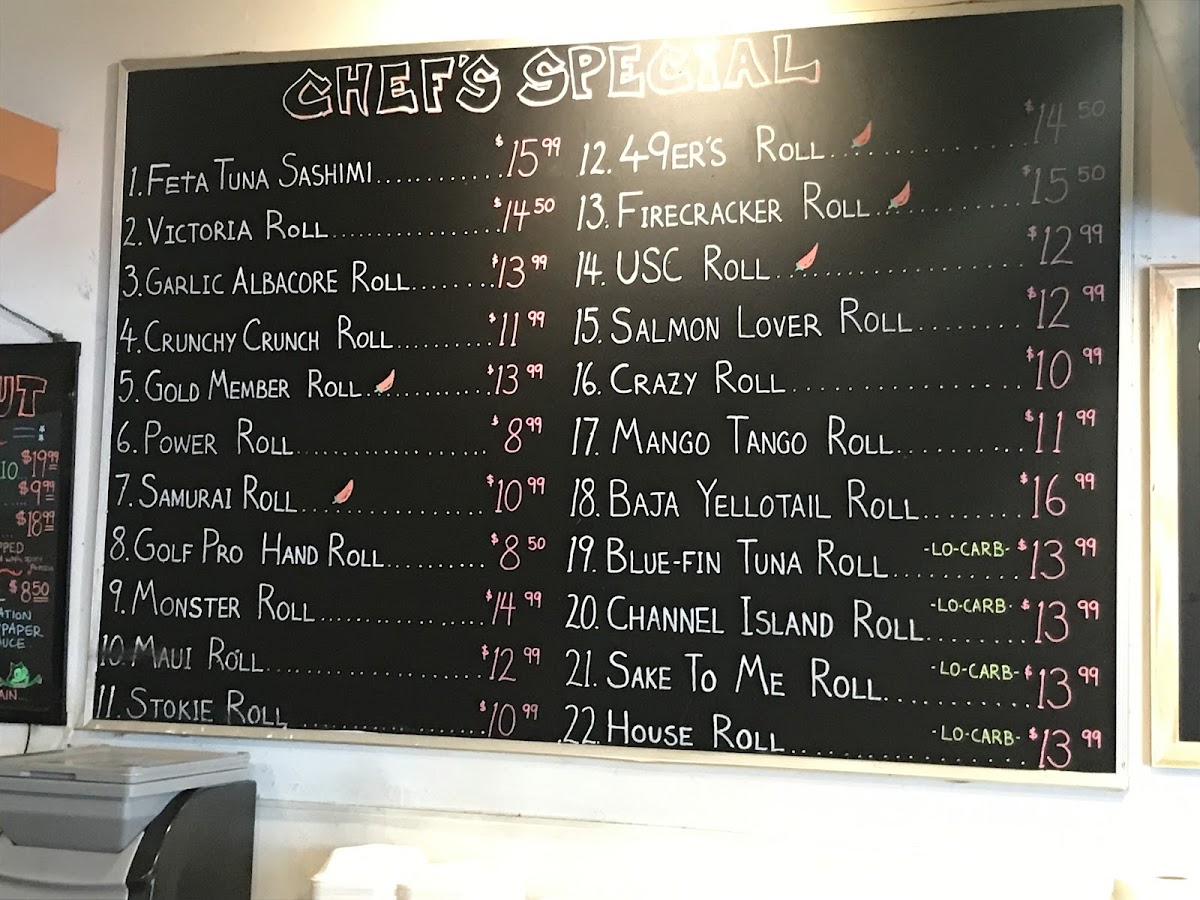 CHEF'S SPECIAL
1. FETA TUNA SASHIMI............$15.99
2. VICTORIA ROLL..................$14.50
3. GARLIC ALBACORE ROLL........$13.99
4. CRUNCHY CRUNCH ROLL..........$11.99
5. GOLD MEMBER ROLL............$13.99
6. POWER ROLL....................$8.99
7. SAMURAI ROLL..................$10.99
8. GOLF PRO HAND ROLL..........$8.50
9. MONSTER ROLL..................$14.99
10. MAUI ROLL.....................$12.99
11. STOKIE ROLL...................$10.99
12. 49ER'S ROLL..................$14.50
13. FIRECRACKER ROLL............$15.50
14. USC ROLL.....................$12.99
15. SALMON LOVER ROLL.........$12.99
16. CRAZY ROLL...................$10.99
17. MANGO TANGO ROLL..........$11.99
18. BAJA YELLOTAIL ROLL........$16.99
19. BLUE-FIN TUNA ROLL -LO-CARB- $13.99
20. CHANNEL ISLAND ROLL -LO-CARB- $13.99
21. SAKE TO ME ROLL -LO-CARB- $13.99
22. HOUSE ROLL -LO-CARB- $13.99
UT
IO $19.99
$9.99
$18.99
PPED
$8.50
ATION
PAPER
UCE
AIN